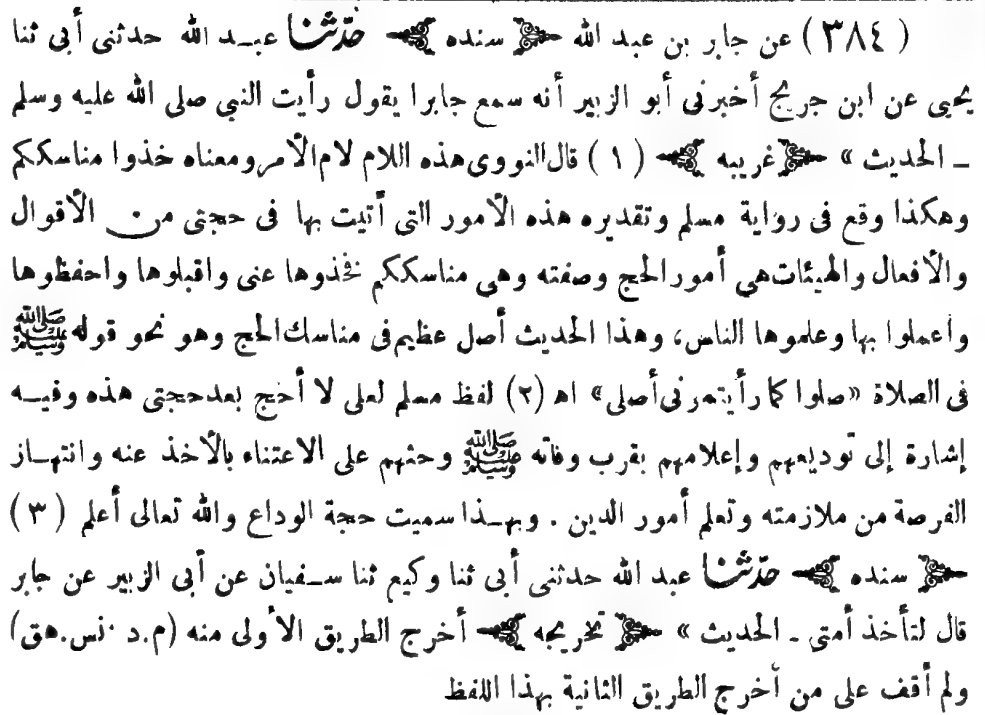 (٣٨٤) عن جابر بن عبد الله ﴿ سنده ﴾ حدّثنا عبـد الله حدثنى أبى ثنا
يحيى عن ابن جريج أخبرنى أبو الزبير أنه سمع جابرا يقول رأيت النبي صلى الله عليه وسلم
ـ الحديث » ﴿ غريبه ﴾ (١) قال النووى هذه اللام لام الأمر ومعناه خذوا مناسككم
وهكذا وقع فى رواية مسلم وتقديره هذه الأمور التى أتيت بها فى حجتى من الأقوال
والأفعال والهيئات هي أمور الحج وصفته وهى مناسككم نخذوها عنى واقبلوها واحفظوها
واعملوا بها وعلموها الناس، وهذا الحديث أصل عظيم فى مناسك الحج وهو نحو قوله ﷺ
فى الصلاة «صلوا كما رأيتمونى أصلى» اهـ (٢) لفظ مسلم لعلى لا أحج بعد حجتى هذه وفيـه
إشارة إلى توديعهم وإعلامهم بقرب وفاته ﷺ وحثهم على الاعتناء بالأخذ عنه وانتهـاز
الفرصة من ملازمته وتعلم أمور الدين . وبهـذا سميت حجة الوداع والله تعالى أعلم (٣)
﴿ سنده ﴾ حدّثنا عبد الله حدثنى أبى ثنا وكيع ثنا سـفيان عن أبى الزبير عن جابر
قال لتأخذ أمتى ـ الحديث » ﴿ تخريجه ﴾ أخرج الطريق الأولى منه (م.د.نس.هق)
ولم أقف على من أخرج الطريق الثانية بهذا اللفظ